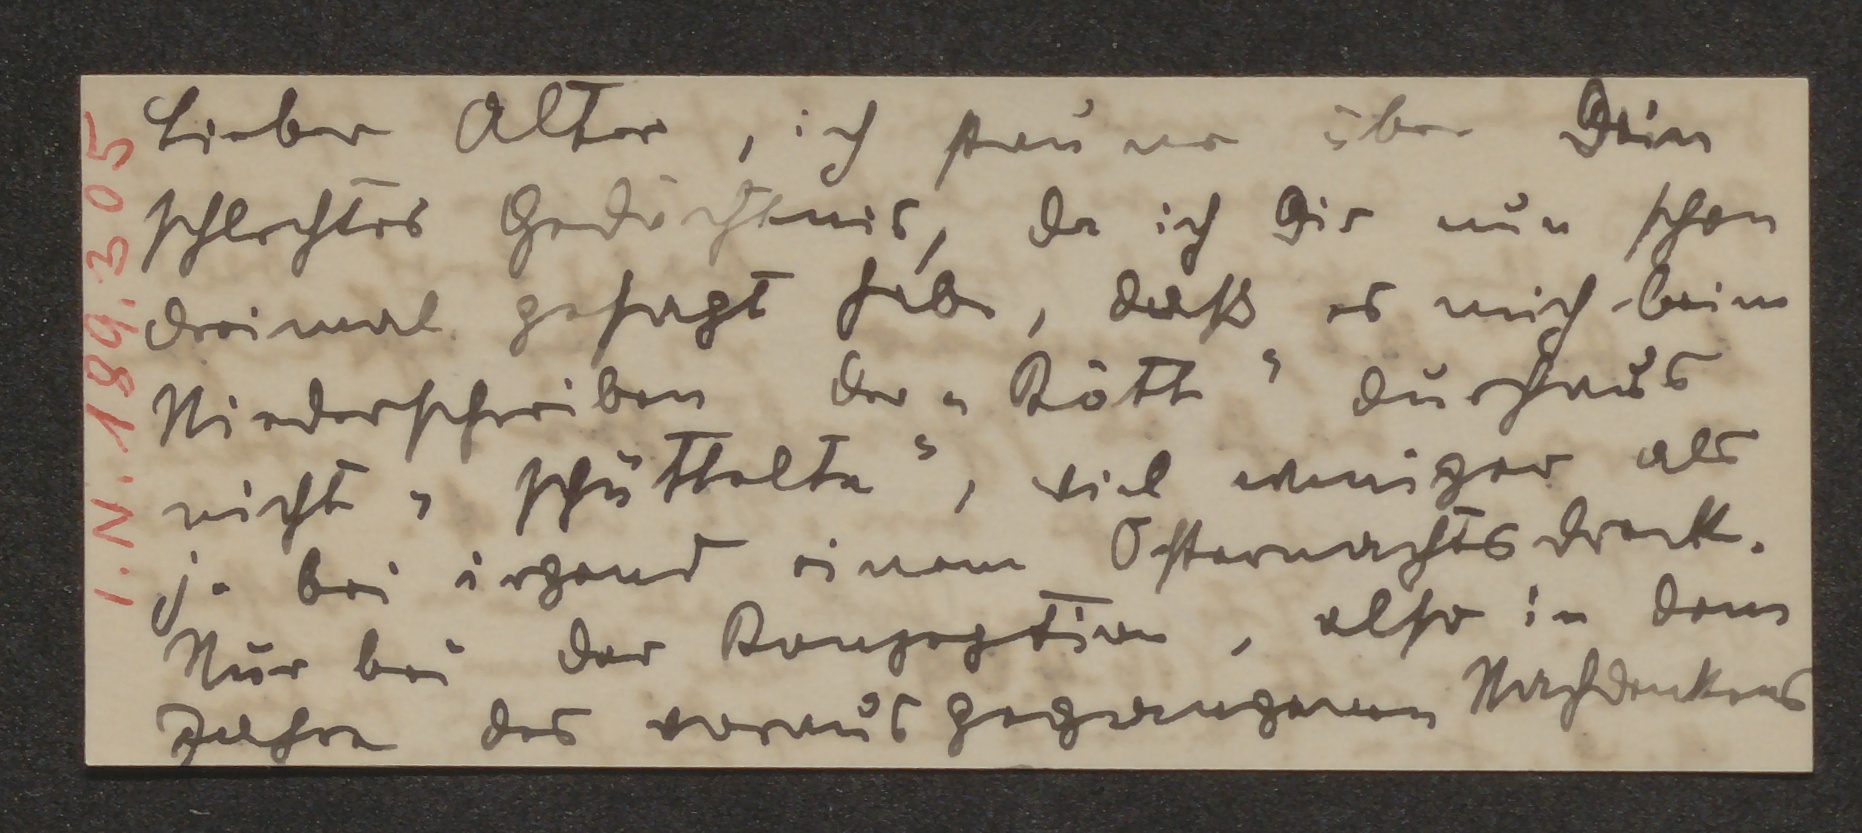 I.N. 189.305
Lieber Alter, ich staune über Dein
schlechtes Gedächtnis, da ich Dir nun schon
dreimal gesagt habe, daß es mich beim
Niederschreiben der „Rött“ durchaus
nicht „schüttelte“, viel weniger als
je bei irgend einem Osternachtsdreck.
Nur bei der Konzeption, also in dem
Jahre des vorausgegangenen Nachdenkens